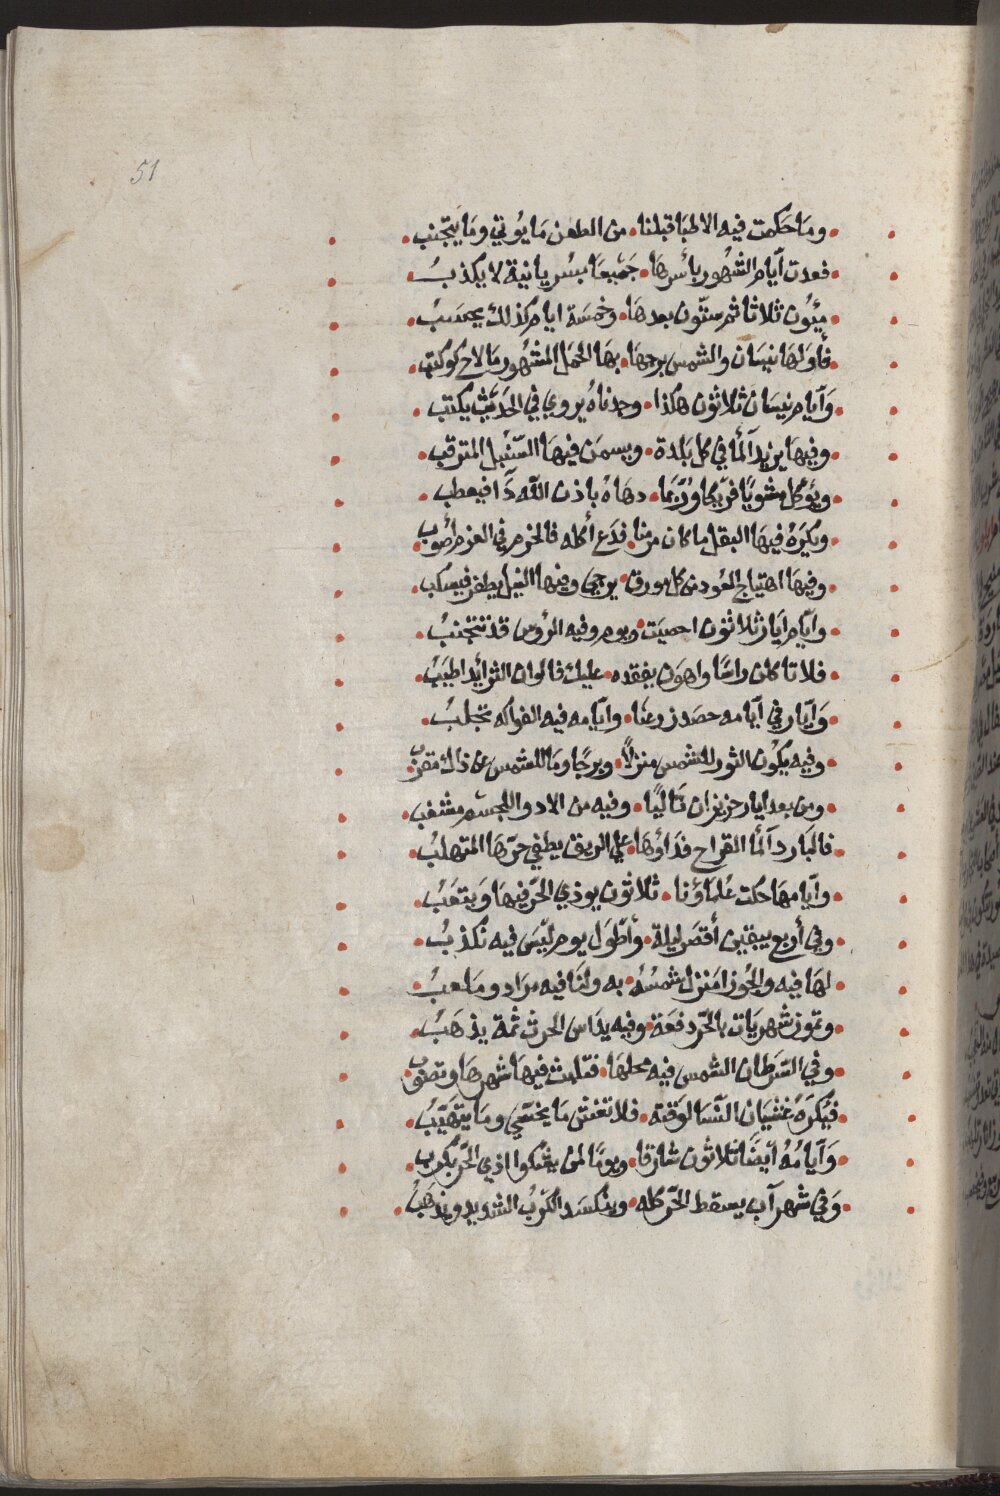 51
وما حَكمت فيه الاطبا قبلنا • من الطعن مَا يُوتي ومَا يتجنب
فعدت أيام الشهُور بأسرهَا • جَميعَا بسُريانية لا يكذبُ
مِئون ثلاثا ثم ستّون بعدهَا • وخمسَة ايام كذلك يحسَبُ
فأولهَا نيسَان والشمس برجهَا • بهَا الحمَل المشهُور مَا لاح كوكب
وَأيام نيسَان ثلاثون هكذا • وجدناهُ يروي في الحَديث يكتب
وفيهَا يزيد آلمأ في كل بَلدة • ويسمَن فيهَا السّنبل المترقب
ويؤكل مشويًا فريكا ورُبّما • دهَاهُ باذن اللّه دَآ فيعطب
ويكرَهُ فيهَا البقل ما كان مزمنا • فدَع أكله فالحزم في العزم أصُوب
وفيهَا اهتياج العُود من كل مورق • يرجى وفيها النيل يطفر فيسكب
وأيّام ايَار ثلاثون احصيَت • ويوم وفيه الرؤس قد تتجنبُ
فلا تاكلن راسًا واهوَن بفقده • عليك فالوان الثرائد اطيَبُ
وَأيّار في أيّامه حصَد زرعنَا • وايّامه فيه الفواكه تجلبُ
وفيه يكوُن الثور للشمس منزلاً • وبرجًا ومَا للشمس عن ذاك مقربُ
ومن بعد ايار حزيران تَاليًا • وفيه من الادوا للجسم مشغب
فالبَارد آلمأ القراح فدَاؤهَا • علي الريق يطفي حرّهَا المتهلبُ
وأيّامهَا حكت عُلمَاؤنا • ثلاثون يوذي الحرّ فيهَا وَيتعَبُ
وفي أربع يبقين أقصَر ليلة • وأطوَل يوم ليَس فيه تكذبُ
لهَا فيه والجُوزا مَنزل شمسُهُ • به ولنَا فيه مرَاد ومَلعبُ
وتموز شهر يَات بالحرّ دفعَة • وفيه يدَاس الحرث ثمة يذهَبُ
وفي السّرطان الشمس فيه محلهَا • فتلبث فيهَا شهرهَا وتصوبُ
فيُكرَهُ غشيَان النّسا لوَقته • فلا تغش مَا يخشي ومَا يتهَيّبُ
وَأيامُهُ أيضًا ثلاثون شارقا • ويومًا لمن يشكوا اذي الحرّ يكربُ
وَفي شهر آب يسقط الحرّ كله • وينكسَد الكربُ الشديد ويذهَبُ